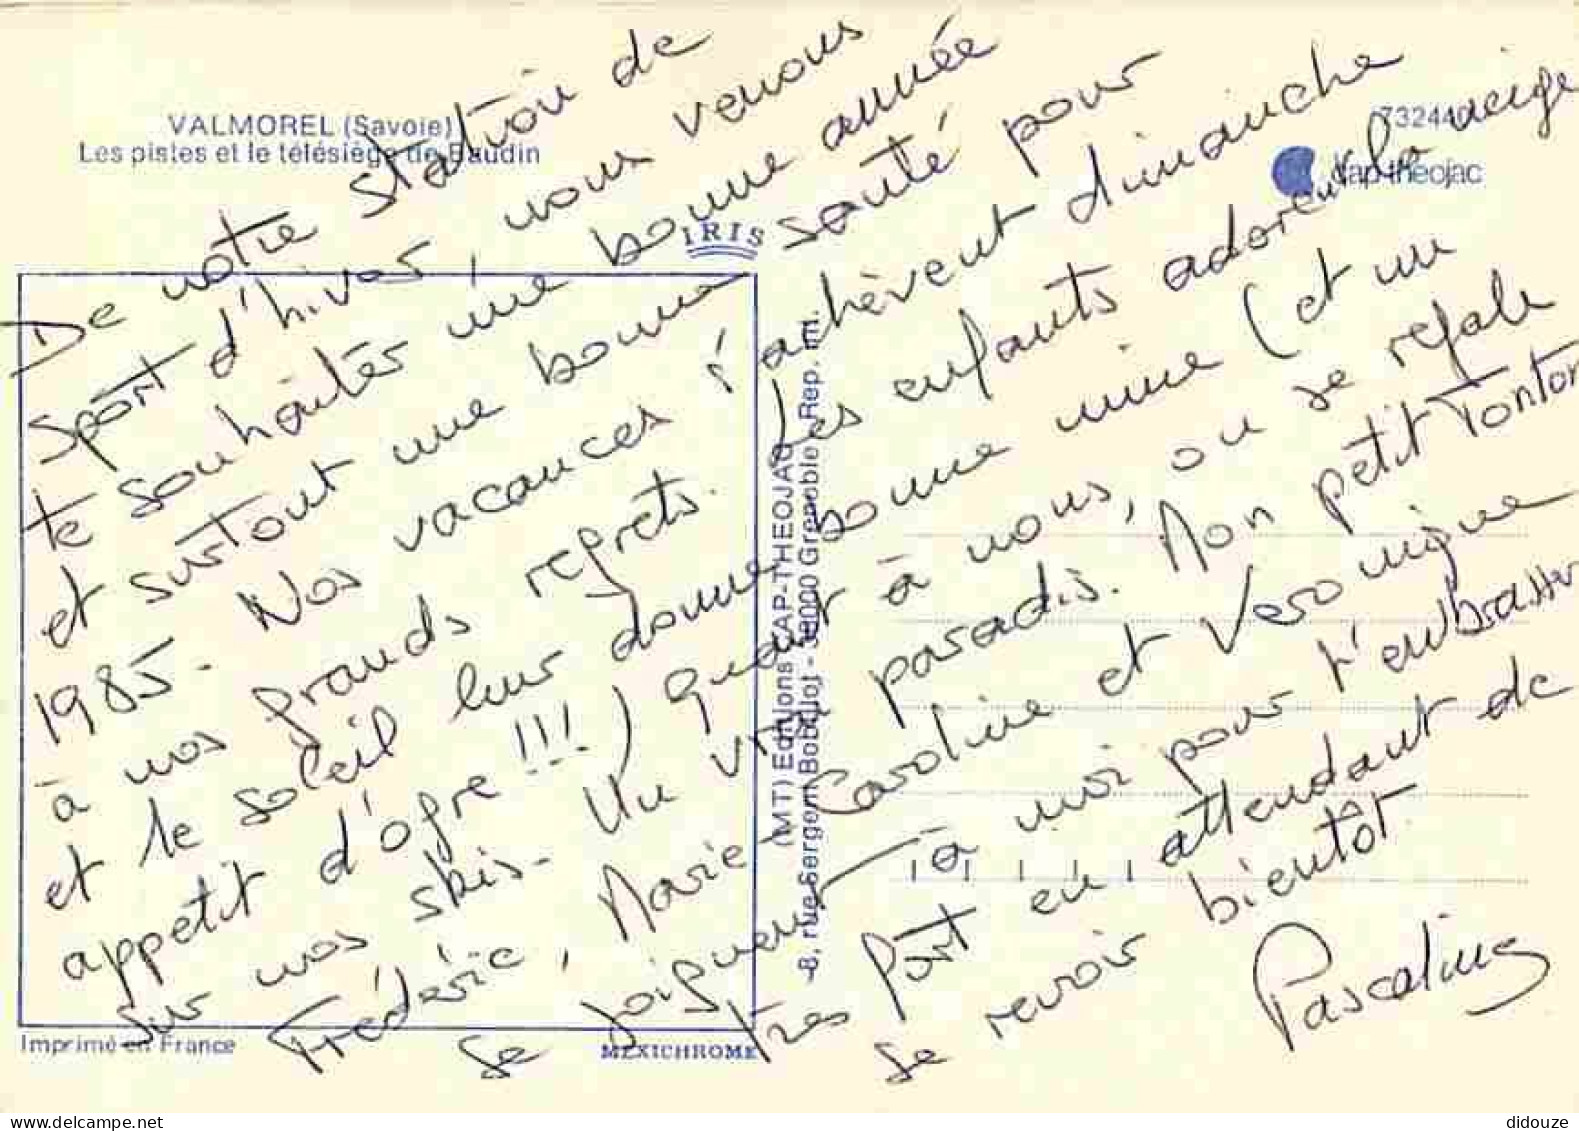 VALMOREL (Savoie)
Les pistes et le télésiège de Baudin
732440
cap-théojac
IRIS
De notre station de
sport d'hiver, nous venons
te souhaiter une bonne année
et surtout une bonne santé pour
1985. Nos vacances s'achèvent dimanche
à nos grands regrets. Les enfants adorent la neige
et le soleil leur donne bonne mine (et un
appetit d'ogre !!!) quant à nous, on se régale
sur nos skis - Un vrai paradis. Mon petit Tonton
Frédéric, Marie-Caroline et Veronique
se joignent à moi pour t'embrasser
très fort en attendant de
se revoir bientôt
Pascaline
(MT) Editions CAP-THEOJAC
8, rue Sergent Bobillot - 38000 Grenoble Rep. int.
Imprimé en France
MEXICHROME
didouze
delcampe.net